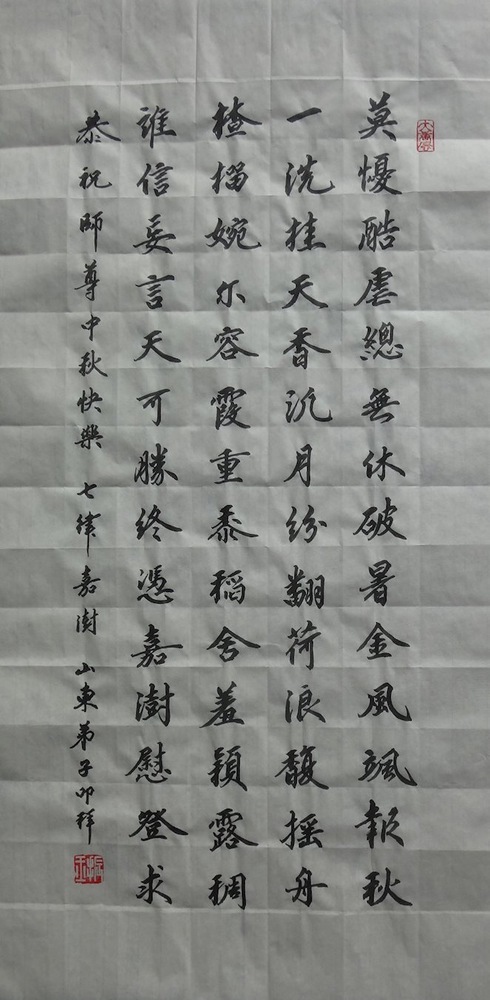 莫懮酷虐總無休破暑金風颯報秋
一洗挂天香沉月紛翻荷浪馥摇舟
楂榴婉尔容霞重黍稻含羞穎露稠
誰信妄言天可勝终憑嘉澍慰登求
恭祝師尊中秋快樂 七律嘉澍 山東弟子叩拜